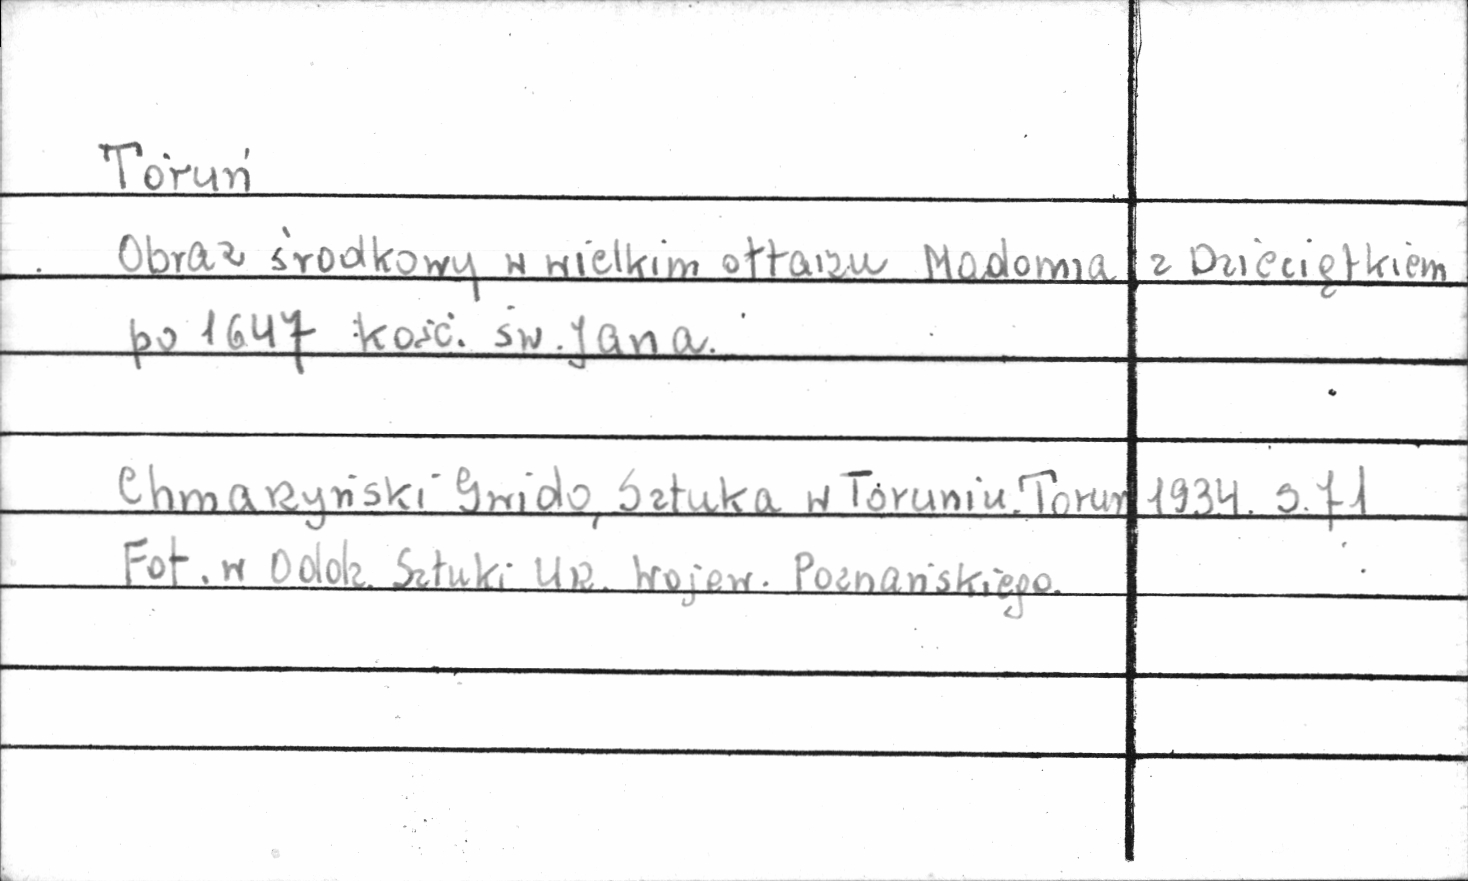 Toruń
Obraz środkowy w wielkim ołtarzu Madonna z Dzieciętkiem
po 1647 kość. św. Jana.
Chmarzyński Gwido, Sztuka w Toruniu. Toruń 1934. s. 71
Fot. w Oddz. Sztuki Urz. Wojew. Poznańskiego.